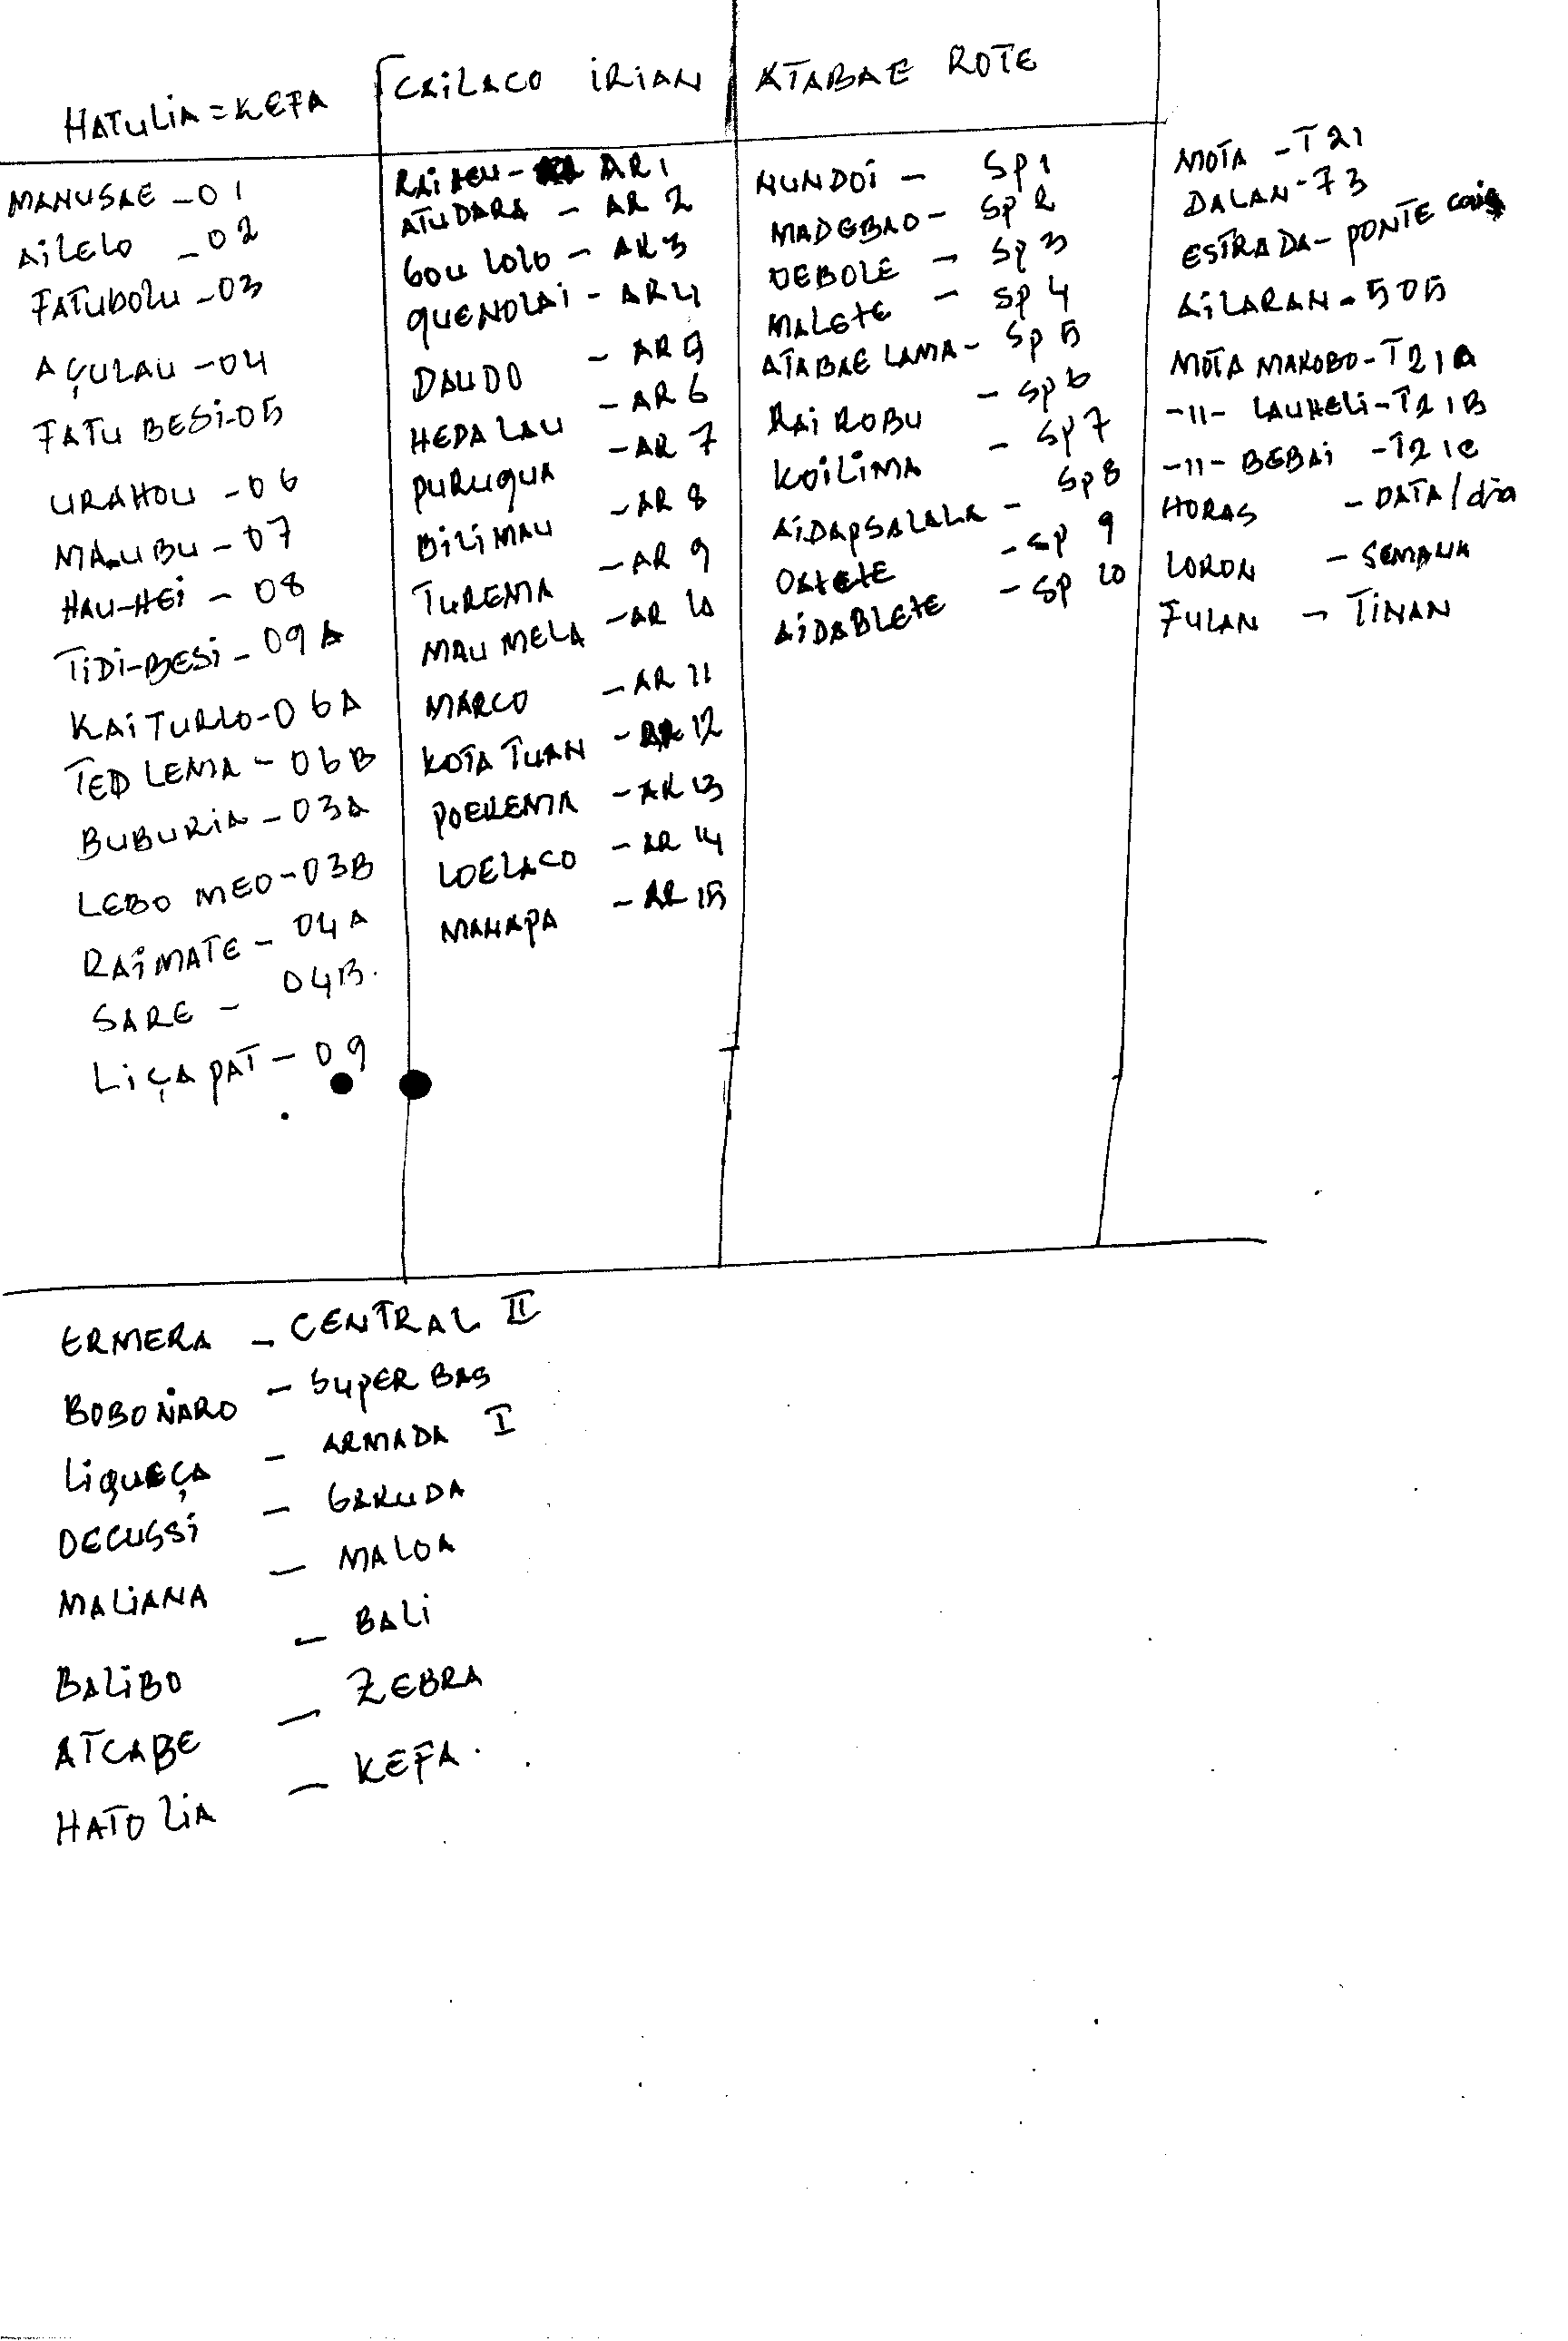 HATULIA = KEFA
MANUSAE - 01
AILELO - 02
FATUBOLU - 03
AÇULAU - 04
FATU BESI - 05
URAHOU - 06
MAUUBU - 07
HAU-HEI - 08
TIDI-BESI - 09A
KAITURLO - 06A
TED LEMA - 06B
BUBURIA - 03A
LEBO MEO - 03B
RAIMATE - 04A
SARE - 04B.
LIÇAPAT - 09
CAILACO IRIAN
AR1
ATUDARA - AR 2
GOU LOLO - AR 3
QUENOLAI - AR4
DAUDO - AR 5
HEDA LAU - AR 6
PURUQUA - AR 7
BILIMAU - AR 8
TUREMA - AR 9
MAU MELA - AR 10
MARCO - AR 11
KOTA TUAN - AR 12
POEREMA - AR 13
LOELACO - AR 14
MANAPA - AR 15
ATABAE ROTE
NUNDOI - SP1
MADEBAO - SP 2
DEBOLE - SP 3
MALETE - SP 4
ATABAE LAMA - SP 5
RAI ROBU - SP 6
KOILIMA - SP7
AIDAPSALALA - SP8
OATETE - SP 9
AIDABLETE - SP 10
MOTA - T21
DALAN - 73
ESTRADA - PONTE
AILARAN - 505
MOTA MAROBO - T21A
-11- LAUHELI - T21B
-11- BEBAI - T21C
HORAS - DATA/dia
LORON - SEMANA
FULAN - TINAN
ERMERA - CENTRAL II
BOBONARO - SUPER BAS
LIQUEÇA - ARMADA I
OECUSSI - GARUDA
MALIANA - MALOA
BALIBO - BALI
ATCABE - ZEBRA
HATOLIA - KEFA.